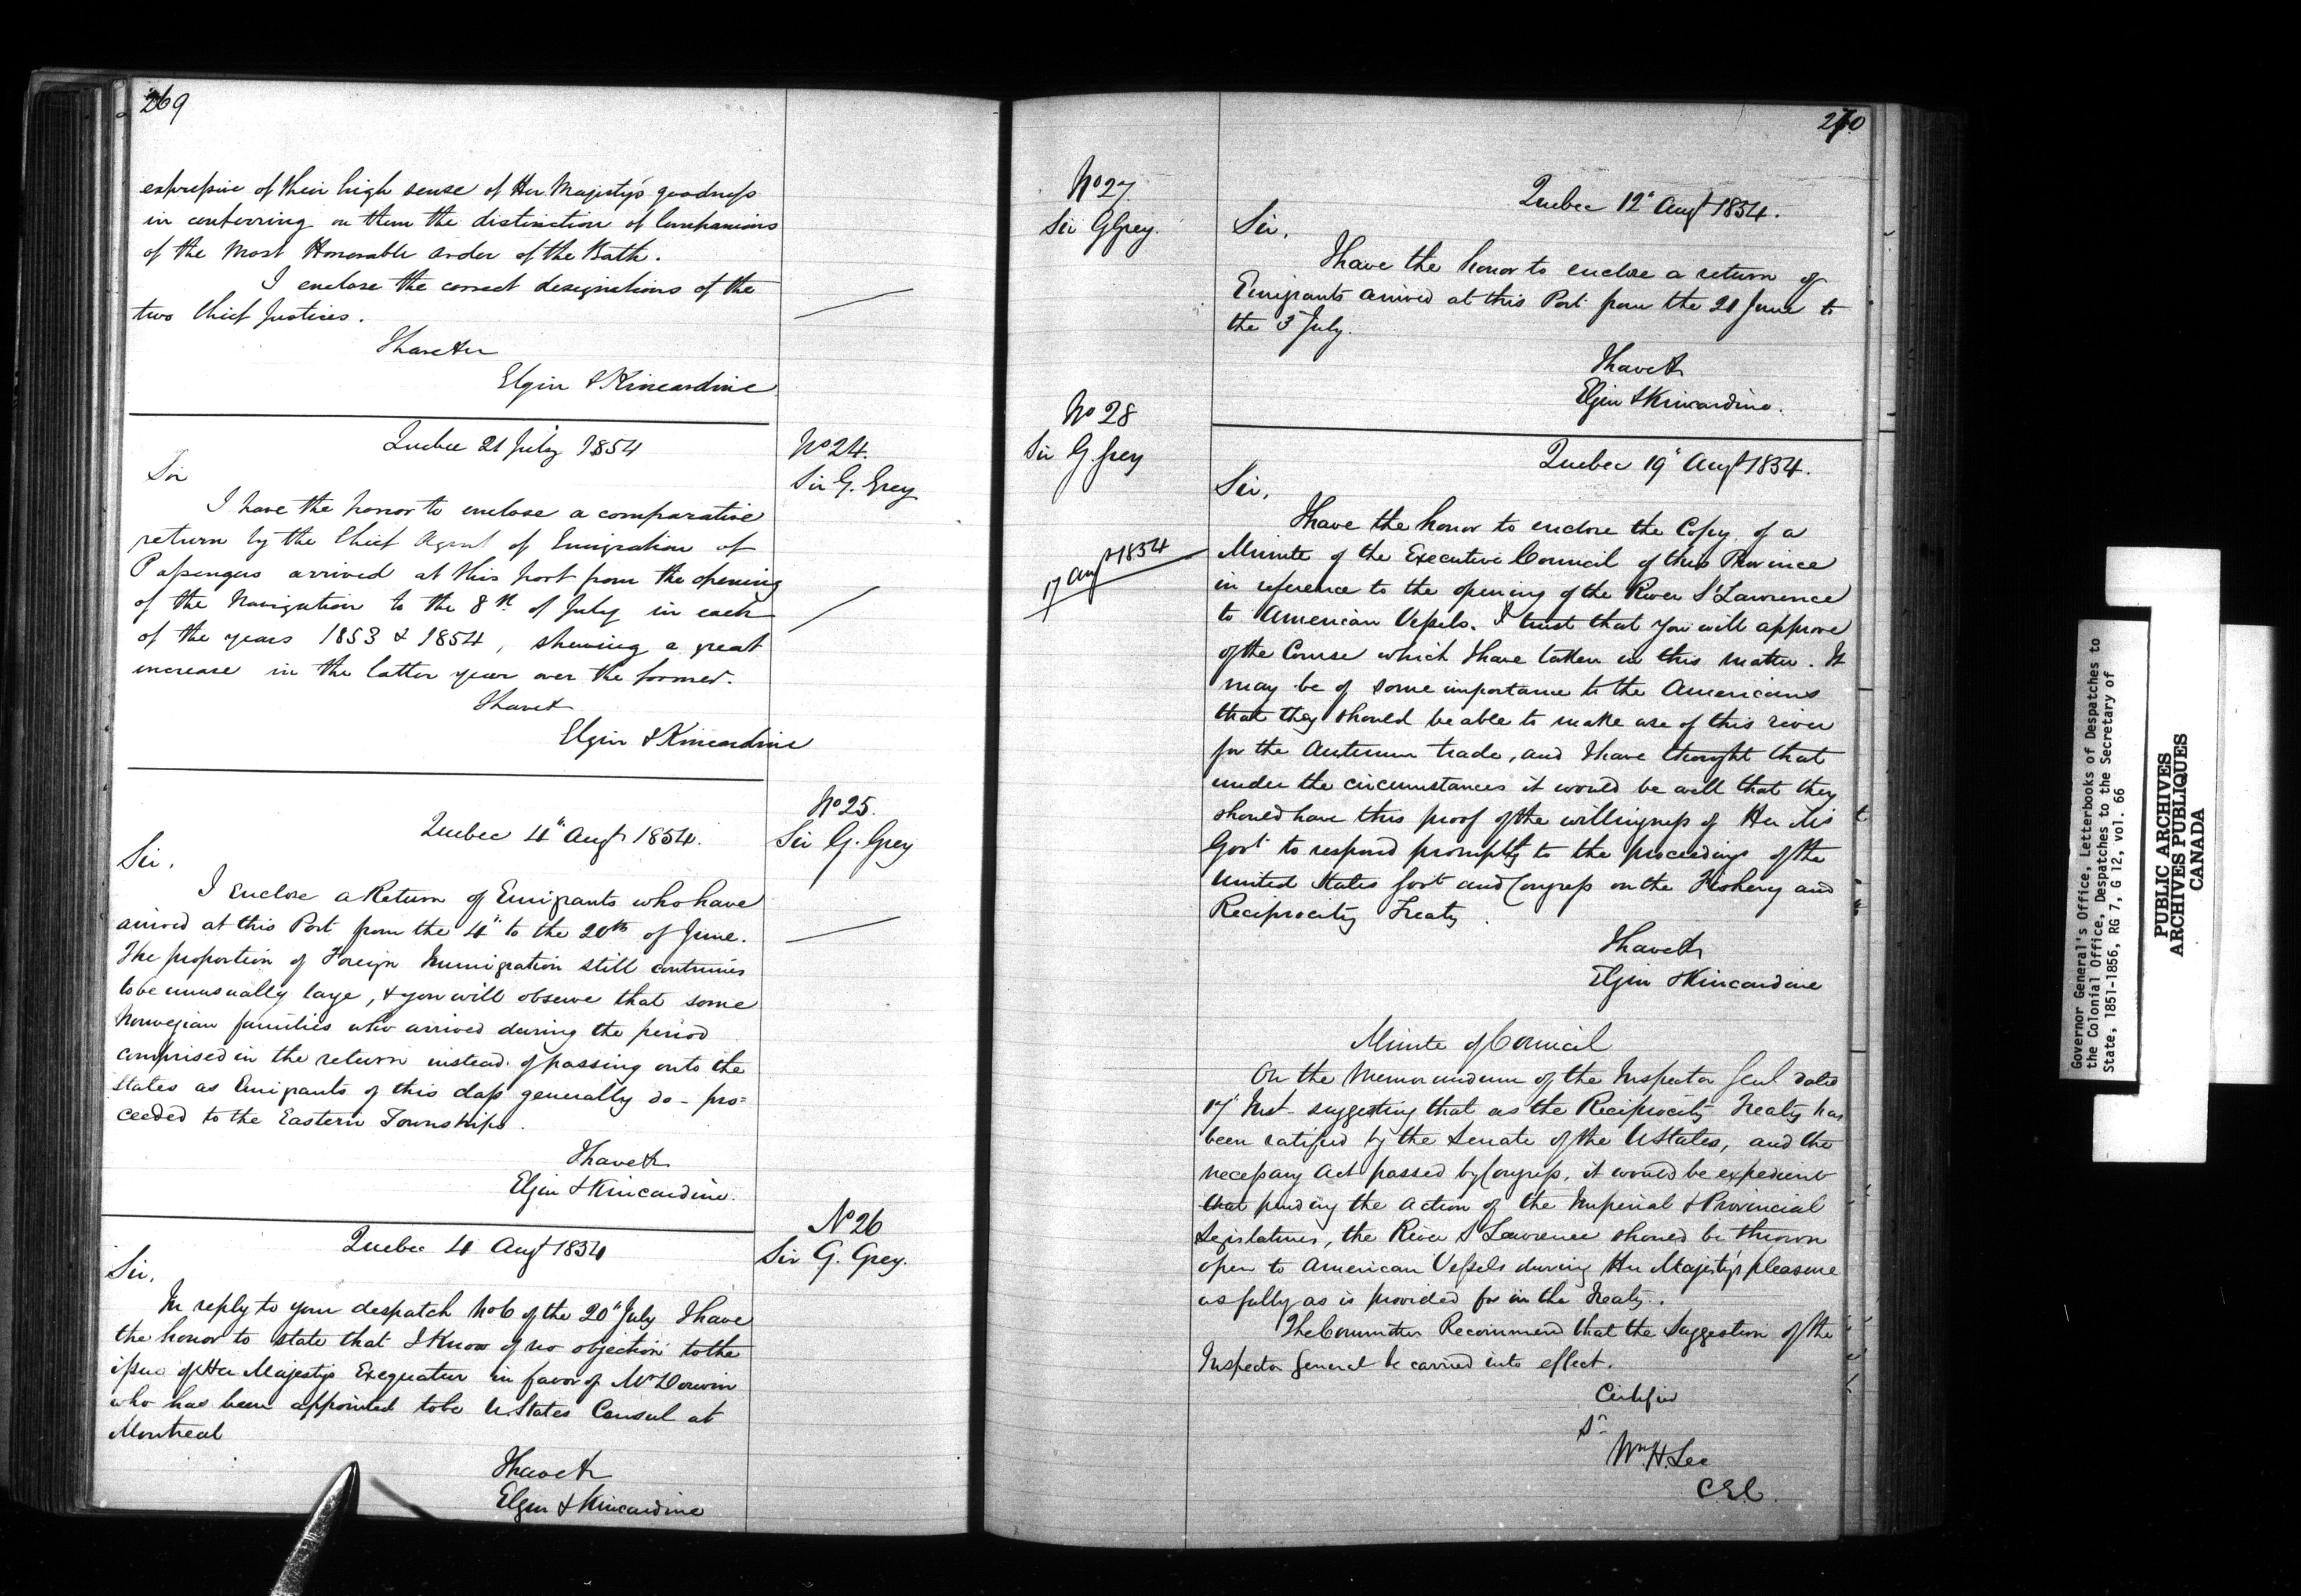 269
expressive of their high sense of Her Majesty's goodness
in conferring on them the distinction of Companions
of the Most Honorable order of the Bath.
I enclose the correct designations of the
two Chief Justices.
I have &c
Elgin & Kincardine
Quebec 21 July 1854
No 24.
Sir G. Grey
Sir
I have the honor to enclose a comparative
return by the Chief Agent of Emigration of
Passengers arrived at this port from the opening
of the Navigation to the 8th of July in each
of the years 1853 & 1854, shewing a great
increase in the latter year over the former.
I have &
Elgin & Kincardine
No 25.
Sir G. Grey
Quebec 4" Augt 1854.
Sir.
I enclose a Return of Emigrants who have
arrived at this Port from the 4" to the 20th of June.
The proportion of Foreign Immigration still continues
to be unusually large, & you will observe that some
Norwegian families who arrived during the period
comprised in the return instead of passing onto the
States as Emigrants of this class generally do - pro=
ceeded to the Eastern Townships.
I have &c
Elgin & Kincardine.
No 26
Sir G. Grey.
Quebec 4 Augt 1854
Sir.
In reply to your despatch No 6 of the 20" July I have
the honor to state that I know of no objection to the
issue of Her Majesty's Exequatur in favor of Mr Dorwin
who has been appointed to be U.States Consul at
Montreal
I have &c
Elgin & Kincardine
270
No 27.
Sir G Grey.
Quebec 12" Augt 1854.
Sir.
I have the honor to enclose a return of
Emigrants arrived at this Port from the 21 June to
the 3 July.
I have &c
Elgin & Kincardine.
No 28
Sir G. Grey
Quebec 19" Augt 1854.
Sir,
I have the honor to enclose the Copy of a
17 Augt 1854
Minute of the Executive Council of this Province
in reference to the opening of the River St Lawrence
to American Vessels. I trust that you will approve
of the Course which I have taken in this matter. It
may be of some importance to the Americans
that they should be able to make use of this river
for the Autumn trade, and I have thought that
under the circumstances it would be well that they
should have this proof of the willingness of Her Ms
Govt to respond promptly to the proceedings of the
United States Govt and Congress on the Fishery and
Reciprocity Treaty.
I have &c
Elgin & Kincardine
Minute of Council
On the Memorandum of the Inspector Genl dated
17" Inst - suggesting that as the Reciprocity Treaty has
been ratified by the Senate of the U States, and the
necessary Act passed by Congress, it would be expedient
that pending the action of the Imperial & Provincial
Legislatures, the River St Lawrence should be thrown
open to American Vessels during Her Majesty's pleasure
as fully as is provided for in the Treaty.
The Committee Recommend that the Suggestion of the
Inspector General be carried into effect.
Certified
Sd
Wm. H. Lee
C.E.C.
Governor General's Office, Letterbooks of Despatches to
the Colonial Office, Despatches to the Secretary of
State, 1851-1856, RG 7, G 12, vol. 66
PUBLIC ARCHIVES
ARCHIVES PUBLIQUES
CANADA